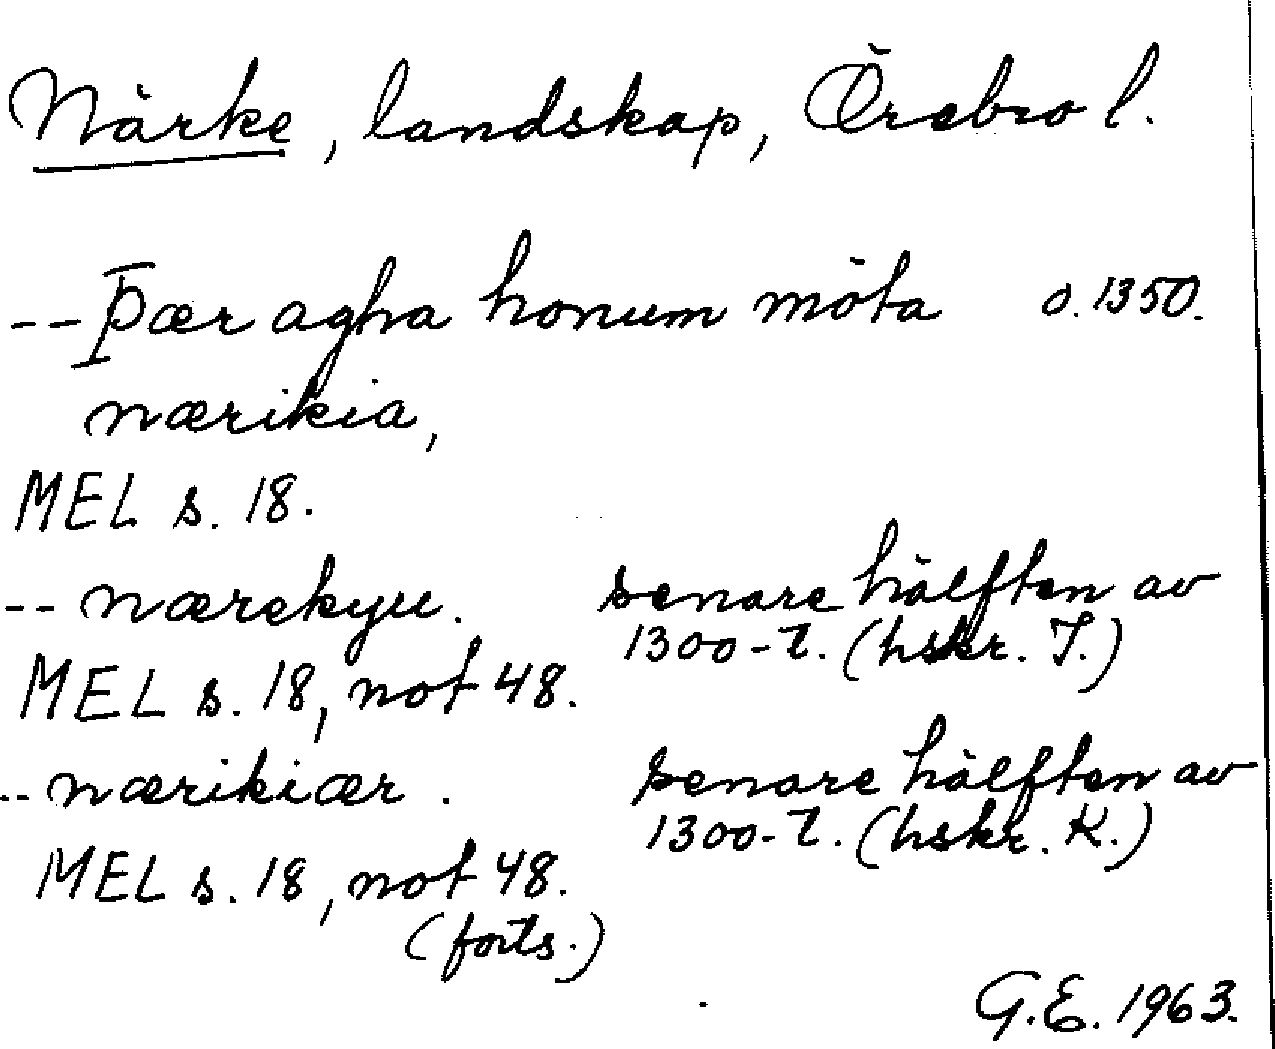 Närke, landskap, Örebro l.
-- Þær agha honum möta o. 1350.
nærikia,
MEL s. 18.
-- nærekyu. senare hälften av
1300-t. (hskr. J.)
MEL s. 18, not 48.
-- nærikiær. senare hälften av
1300-t. (hskr. K.)
MEL s. 18, not 48.
(forts.)
G.E. 1963.